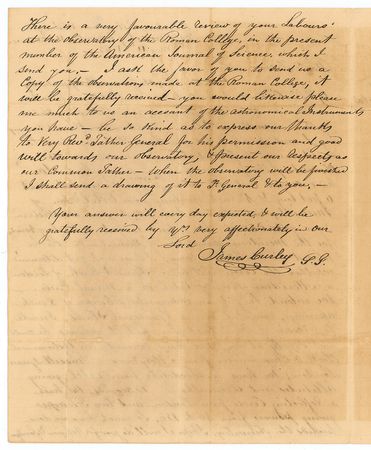 There is a very favourable review of your labours
at the observatory of the Roman College in the present
number of the American Journal of Science, which I
send you, – I ask the favor of you to send us a
Copy of the observations made at the Roman College, it
will be gratefully received – you would likewise please
me much to us an account of the astronomical Instruments
you have – be so kind as to express our thanks
to Very Revd Father General for his permission and good
will towards our Observatory, & present our respects to
our Common Father – When the observatory will be finished
I shall send a drawing of it to Fr General & to you, –
Your answer will every day expected, & will be
gratefully received by yrs very affectionately in our
Lord
James Curley S.J.